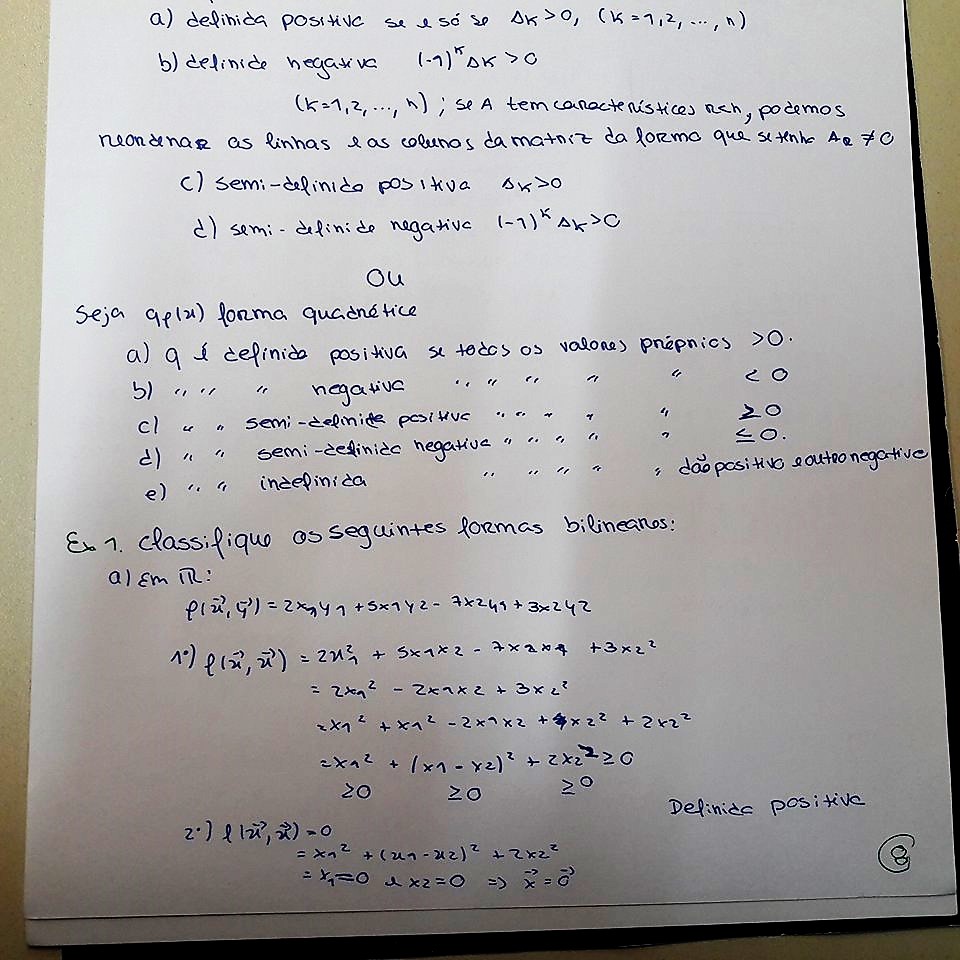 a) definida positiva se e só se Δk>0, (k=1,2, ..., n)
b) definida negativa (-1)^k Δk >0
(k=1,2, ..., n) ; se A tem características r<n, podemos
reordenar as linhas e as colunas da matriz da forma que se tenha Δr ≠0
c) semi-definida positiva Δk>0
d) semi-definida negativa (-1)^k Δk>0
OU
Seja qf(x) forma quadrética
a) q é definida positiva se todos os valores próprios >0.
b) " " " negativa " " " " " <0
c) " " semi-definida positiva " " " " " ≥0
d) " " semi-definida negativa " " " " " ≤0.
e) " " indefinida " " " " " dão positivo e outro negativo
Ex 1. Classifique as seguintes formas bilineares:
a) Em ℝ:
f(x⃗, y⃗) = 2x1y1 + 5x1y2 - 7x2y1 + 3x2y2
1º) f(x⃗, x⃗) = 2x1² + 5x1x2 - 7x2x1 + 3x2²
= 2x1² - 2x1x2 + 3x2²
= x1² + x1² - 2x1x2 + x2² + 2x2²
= x1² + (x1 - x2)² + 2x2² ≥0
≥0 ≥0 ≥0
Definida positiva
2º) f(x⃗, x⃗) = 0
= x1² + (x1 - x2)² + 2x2²
= x1=0 e x2=0 => x⃗ = 0⃗
8